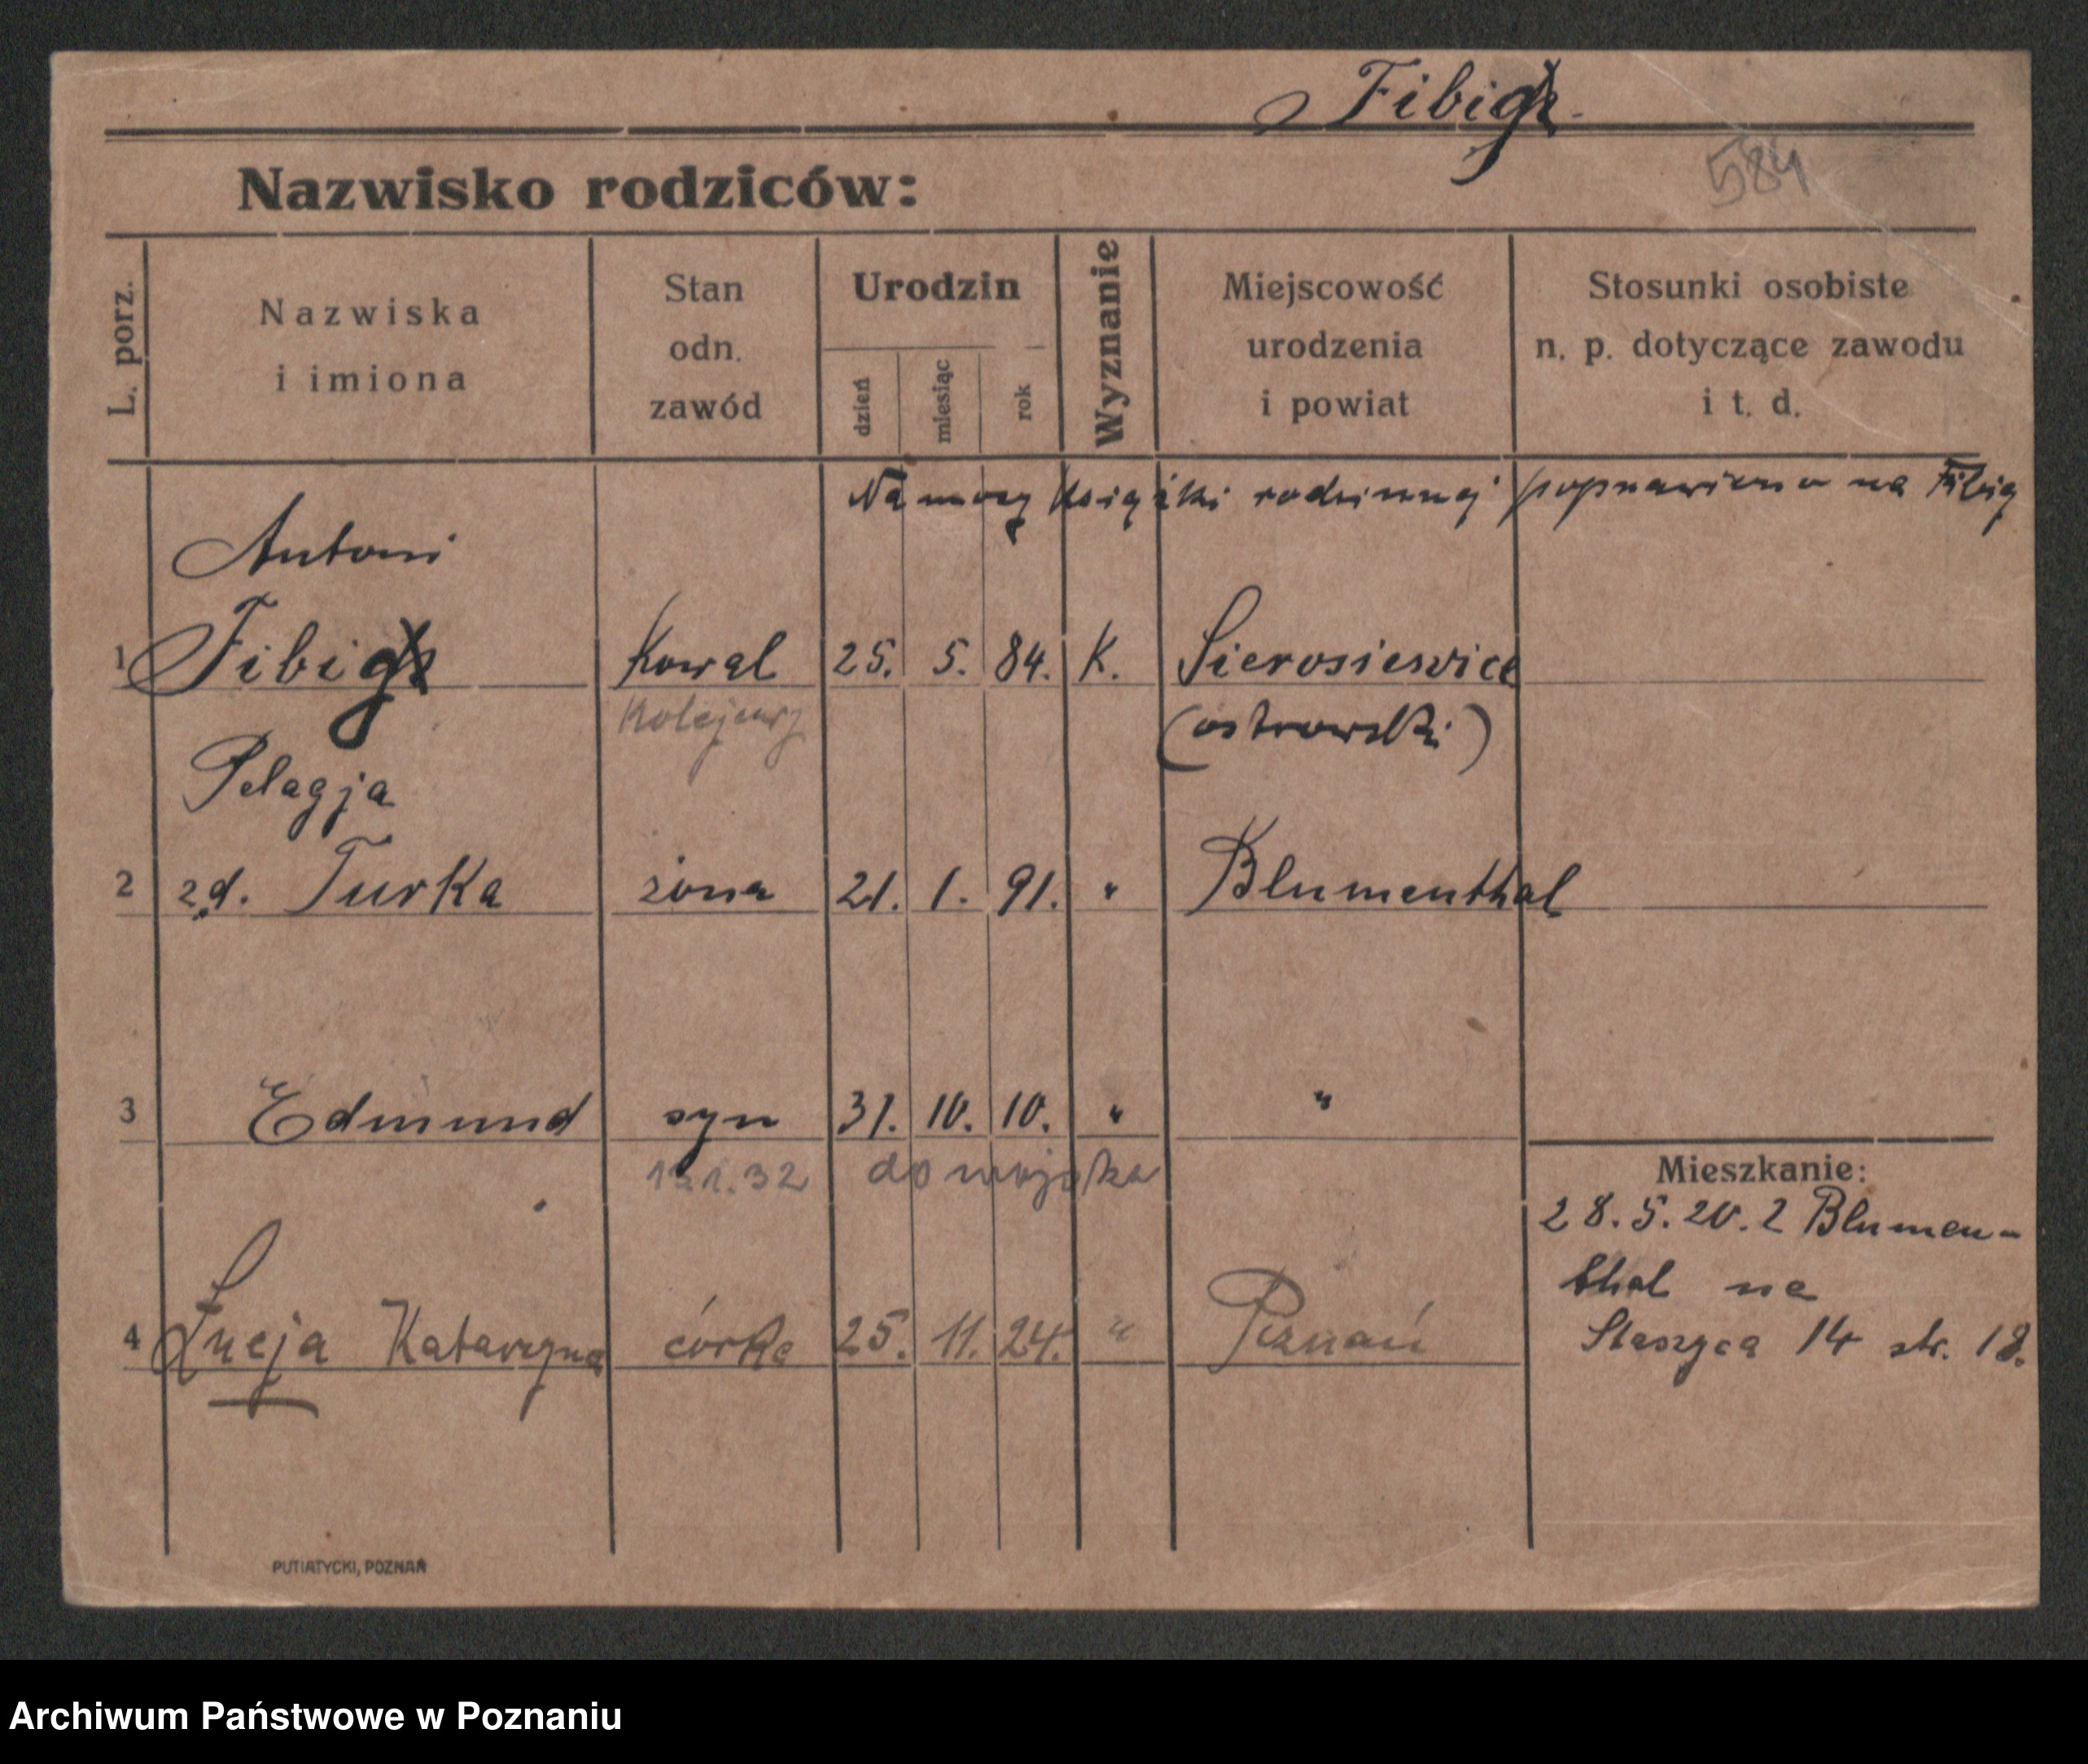 Fibig
584
Nazwisko rodziców:
L. porz.
Nazwiska
i imiona
Stan
odn.
zawód
Urodzin
dzień
miesiąc
rok
Wyznanie
Miejscowość
urodzenia
i powiat
Stosunki osobiste
n. p. dotyczące zawodu
i t. d.
Na mocy książki rodzinnej poprawiono na Fibig
Antoni
1 Fibig Kowal 25. 5. 84. K. Sierosiewice
Kolejowy (ostrowski)
Pelagja
2 z d. Turka żona 21. 1. 91. " Blumenthal
3 Edmund syn 31. 10. 10. " "
1.32 do wojska
4 Łucja Katarzyna córka 25. 11. 24. " Poznań
Mieszkanie:
28.5.20. z Blumen-
thal na
Staszyca 14 str. 18.
PUTIATYCKI, POZNAŃ
Archiwum Państwowe w Poznaniu